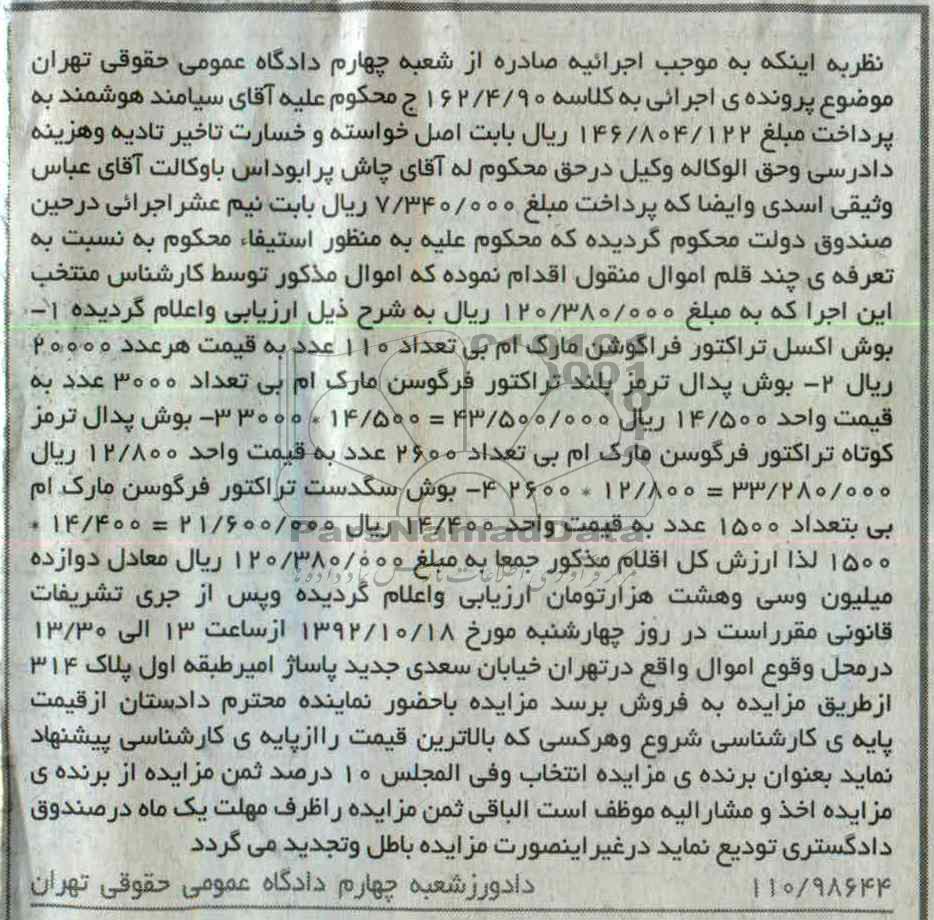 نظربه اینکه به موجب اجرائیه صادره از شعبه چهارم دادگاه عمومی حقوقی تهران
موضوع پرونده ی اجرائی به کلاسه ۱۶۲/۴/۹۰ ج محکوم علیه آقای سیامند هوشمند به
پرداخت مبلغ ۱۴۶/۸۰۴/۱۲۲ ریال بابت اصل خواسته و خسارت تاخیر تادیه وهزینه
دادرسی وحق الوکاله وکیل درحق محکوم له آقای چاش پرابوداس باوکالت آقای عباس
وثیقی اسدی وایضا که پرداخت مبلغ ۷/۳۴۰/۰۰۰ ریال بابت نیم عشراجرائی درحین
صندوق دولت محکوم گردیده که محکوم علیه به منظور استیفاء محکوم به نسبت به
تعرفه ی چند قلم اموال منقول اقدام نموده که اموال مذکور توسط کارشناس منتخب
این اجرا که به مبلغ ۱۲۰/۳۸۰/۰۰۰ ریال به شرح ذیل ارزیابی واعلام گردیده ۱-
بوش اکسل تراکتور فراگوشن مارک ام بی تعداد ۱۱۰ عدد به قیمت هرعدد ۲۰۰۰۰
ریال ۲- بوش پدال ترمز بلند تراکتور فرگوسن مارک ام بی تعداد ۳۰۰۰ عدد به
قیمت واحد ۱۴/۵۰۰ ریال ۴۳/۵۰۰/۰۰۰ = ۱۴/۵۰۰ * ۳۰۰۰ ۳- بوش پدال ترمز
کوتاه تراکتور فرگوسن مارک ام بی تعداد ۲۶۰۰ عدد به قیمت واحد ۱۲/۸۰۰ ریال
۳۳/۲۸۰/۰۰۰ = ۱۲/۸۰۰ * ۲۶۰۰ ۴- بوش سگدست تراکتور فرگوسن مارک ام
بی بتعداد ۱۵۰۰ عدد به قیمت واحد ۱۴/۴۰۰ ریال ۲۱/۶۰۰/۰۰۰ = ۱۴/۴۰۰ *
۱۵۰۰ لذا ارزش کل اقلام مذکور جمعا به مبلغ ۱۲۰/۳۸۰/۰۰۰ ریال معادل دوازده
میلیون وسی وهشت هزارتومان ارزیابی واعلام گردیده وپس از جری تشریفات
قانونی مقرراست در روز چهارشنبه مورخ ۱۳۹۲/۱۰/۱۸ ازساعت ۱۳ الی ۱۳/۳۰
درمحل وقوع اموال واقع درتهران خیابان سعدی جدید پاساژ امیرطبقه اول پلاک ۳۱۴
ازطریق مزایده به فروش برسد مزایده باحضور نماینده محترم دادستان ازقیمت
پایه ی کارشناسی شروع وهرکسی که بالاترین قیمت راازپایه ی کارشناسی پیشنهاد
نماید بعنوان برنده ی مزایده انتخاب وفی المجلس ۱۰ درصد ثمن مزایده از برنده ی
مزایده اخذ و مشارالیه موظف است الباقی ثمن مزایده راظرف مهلت یک ماه درصندوق
دادگستری تودیع نماید درغیراینصورت مزایده باطل وتجدید می گردد
۱۱۰/۹۸۶۴۴ دادورزشعبه چهارم دادگاه عمومی حقوقی تهران
ParsNamadData